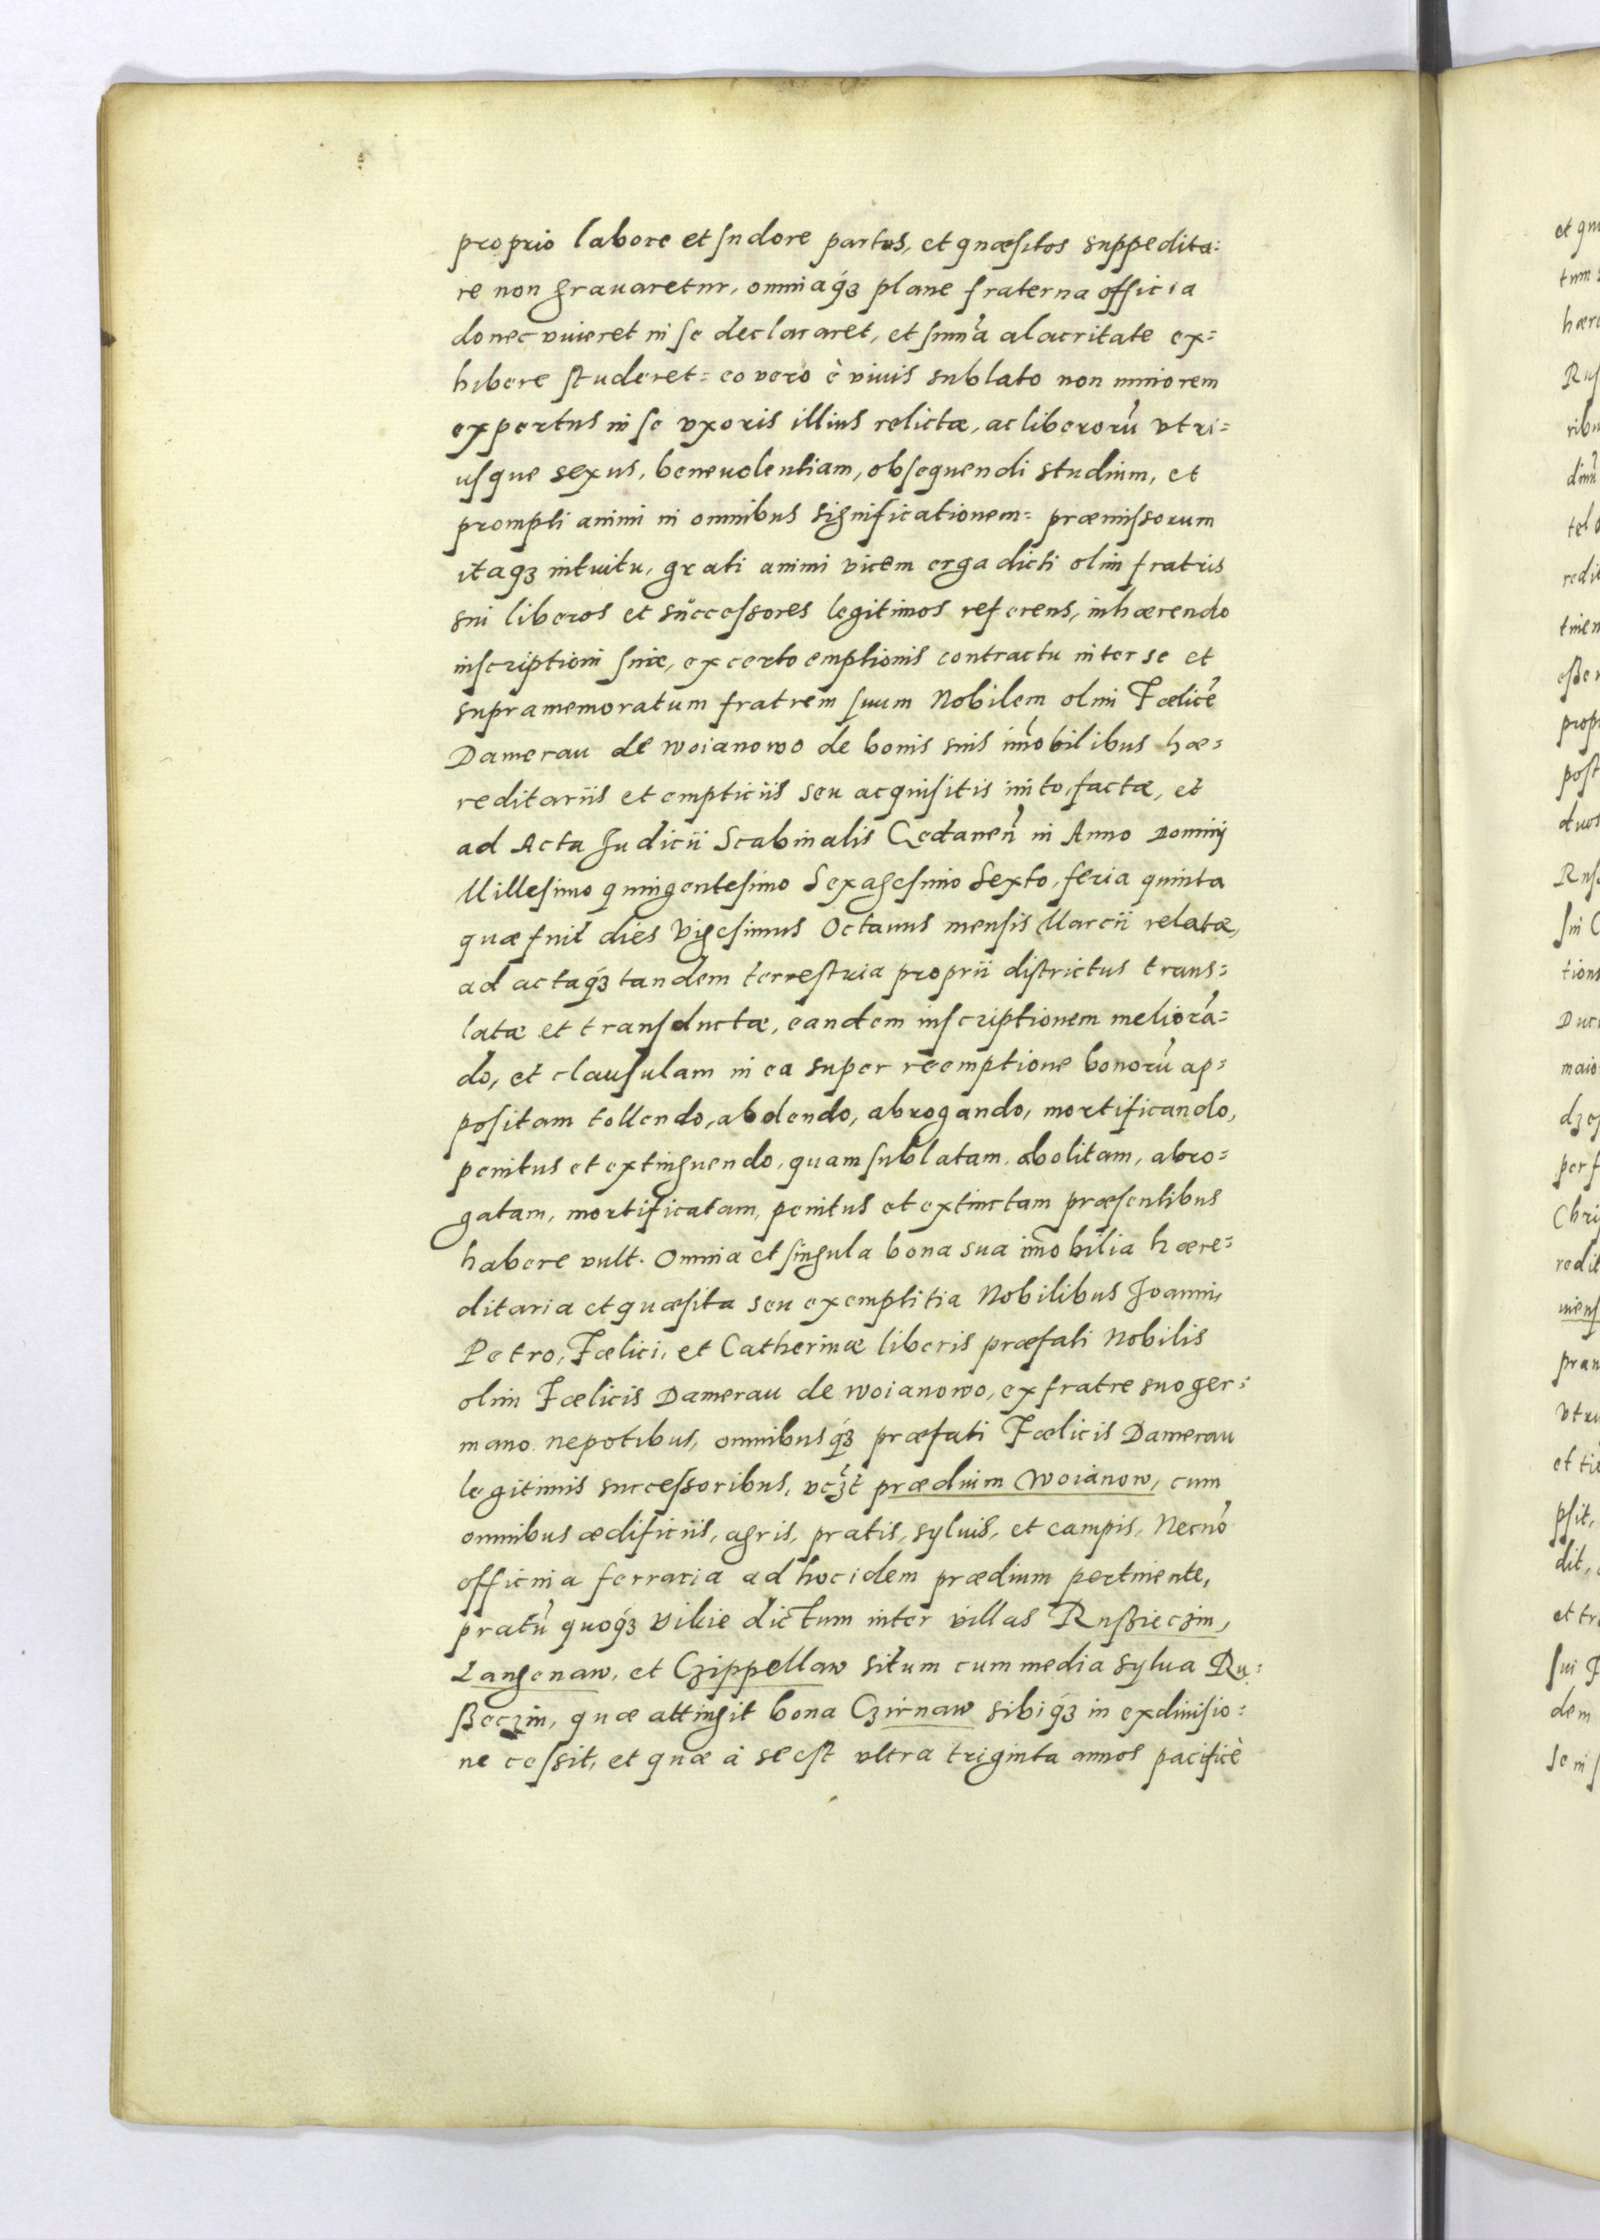 proprio labore et sudore partos, et quæsitos suppedita=
re non gravaretur, omniaq́ꝫ plane fraterna officia
donec viueret in se declararet, et sum̃a alacritate ex=
hibere studeret= eo vero è viuis sublato non minorem
expertus in se vxoris illius relictæ, ac liberorũ vtri=
usque sexus, beneuolentiam, obsequendi studium, et
prompti animi in omnibus significationem= præmissorum
itaqꝫ intuitu, grati animi vicem erga dicti olim fratris
sui liberos et successores legitimos referens, inhærendo
inscriptioni suæ, ex certo emptionis contractu inter se et
supramemoratum fratrem suum Nobilem olim Fœlicẽ
Damerau de Woianowo de bonis suis im̃obilibus hæ=
reditariis et empticiis seu acquisitis inito, factæ, et
ad Acta Judicii Scabinalis Gedaneñ in Anno Domini
Millesimo quingentesimo Sexagesimo Sexto, feria quinta
quæ fuit dies Vigesimus Octauus mensis Marcii relatæ,
ad actaq́ꝫ tandem terrestria proprii districtus trans=
latæ et transductæ, eandem inscriptionem meliorã=
do, et clausulam in ea super reemptione bonorũ ap=
positam tollendo, abolendo, abrogando, mortificando,
penitus et extinguendo, quam sublatam, abolitam, abro=
gatam, mortificatam, penitus et extinctam præsentibus
habere vult. Omnia et singula bona sua im̃obilia hære=
ditaria et quæsita seu exemptitia Nobilibus Joanni,
Petro, Fœlici, et Catherinæ liberis præfati Nobilis
olim Fœlicis Damerau de Woianowo, ex fratre suo ger=
mano nepotibus, omnibusq́ꝫ præfati Fœlicis Damerau
legitimis successoribus, vcꝫt prædium Woianow, cum
omnibus ædificiis, agris, pratis, syluis, et campis, Necnõ
officina ferraria ad hoc idem prædium pertinente,
pratũ quoq́ꝫ Vikie dictum inter villas Rusßieczin,
Langenaw, et Czippellaw situm cum media sylua Ru=
ßeczin, quæ attingit bona Czirnaw sibiq́ꝫ in exdiuisio=
ne cessit, et quæ à se est vltra triginta annos pacificè